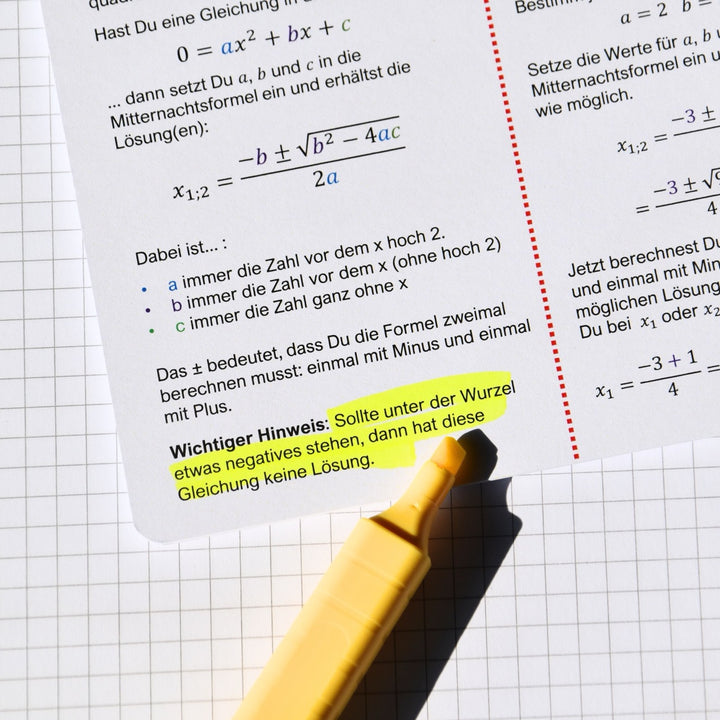 Hast Du eine Gleichung in
0 = ax² + bx + c
... dann setzt Du a, b und c in die
Mitternachtsformel ein und erhältst die
Lösung(en):
x₁;₂ = (−b ± √(b² − 4ac)) / 2a
Dabei ist... :
• a immer die Zahl vor dem x hoch 2.
• b immer die Zahl vor dem x (ohne hoch 2)
• c immer die Zahl ganz ohne x
Das ± bedeutet, dass Du die Formel zweimal
berechnen musst: einmal mit Minus und einmal
mit Plus.
Wichtiger Hinweis: Sollte unter der Wurzel
etwas negatives stehen, dann hat diese
Gleichung keine Lösung.
a = 2 b =
Setze die Werte für a, b
Mitternachtsformel ein
wie möglich.
x₁;₂ = −3 ±
= −3 ± √ / 4
Jetzt berechnest Du
und einmal mit
möglichen Lösung
Du bei x₁ oder x₂
x₁ = (−3 + 1) / 4 =